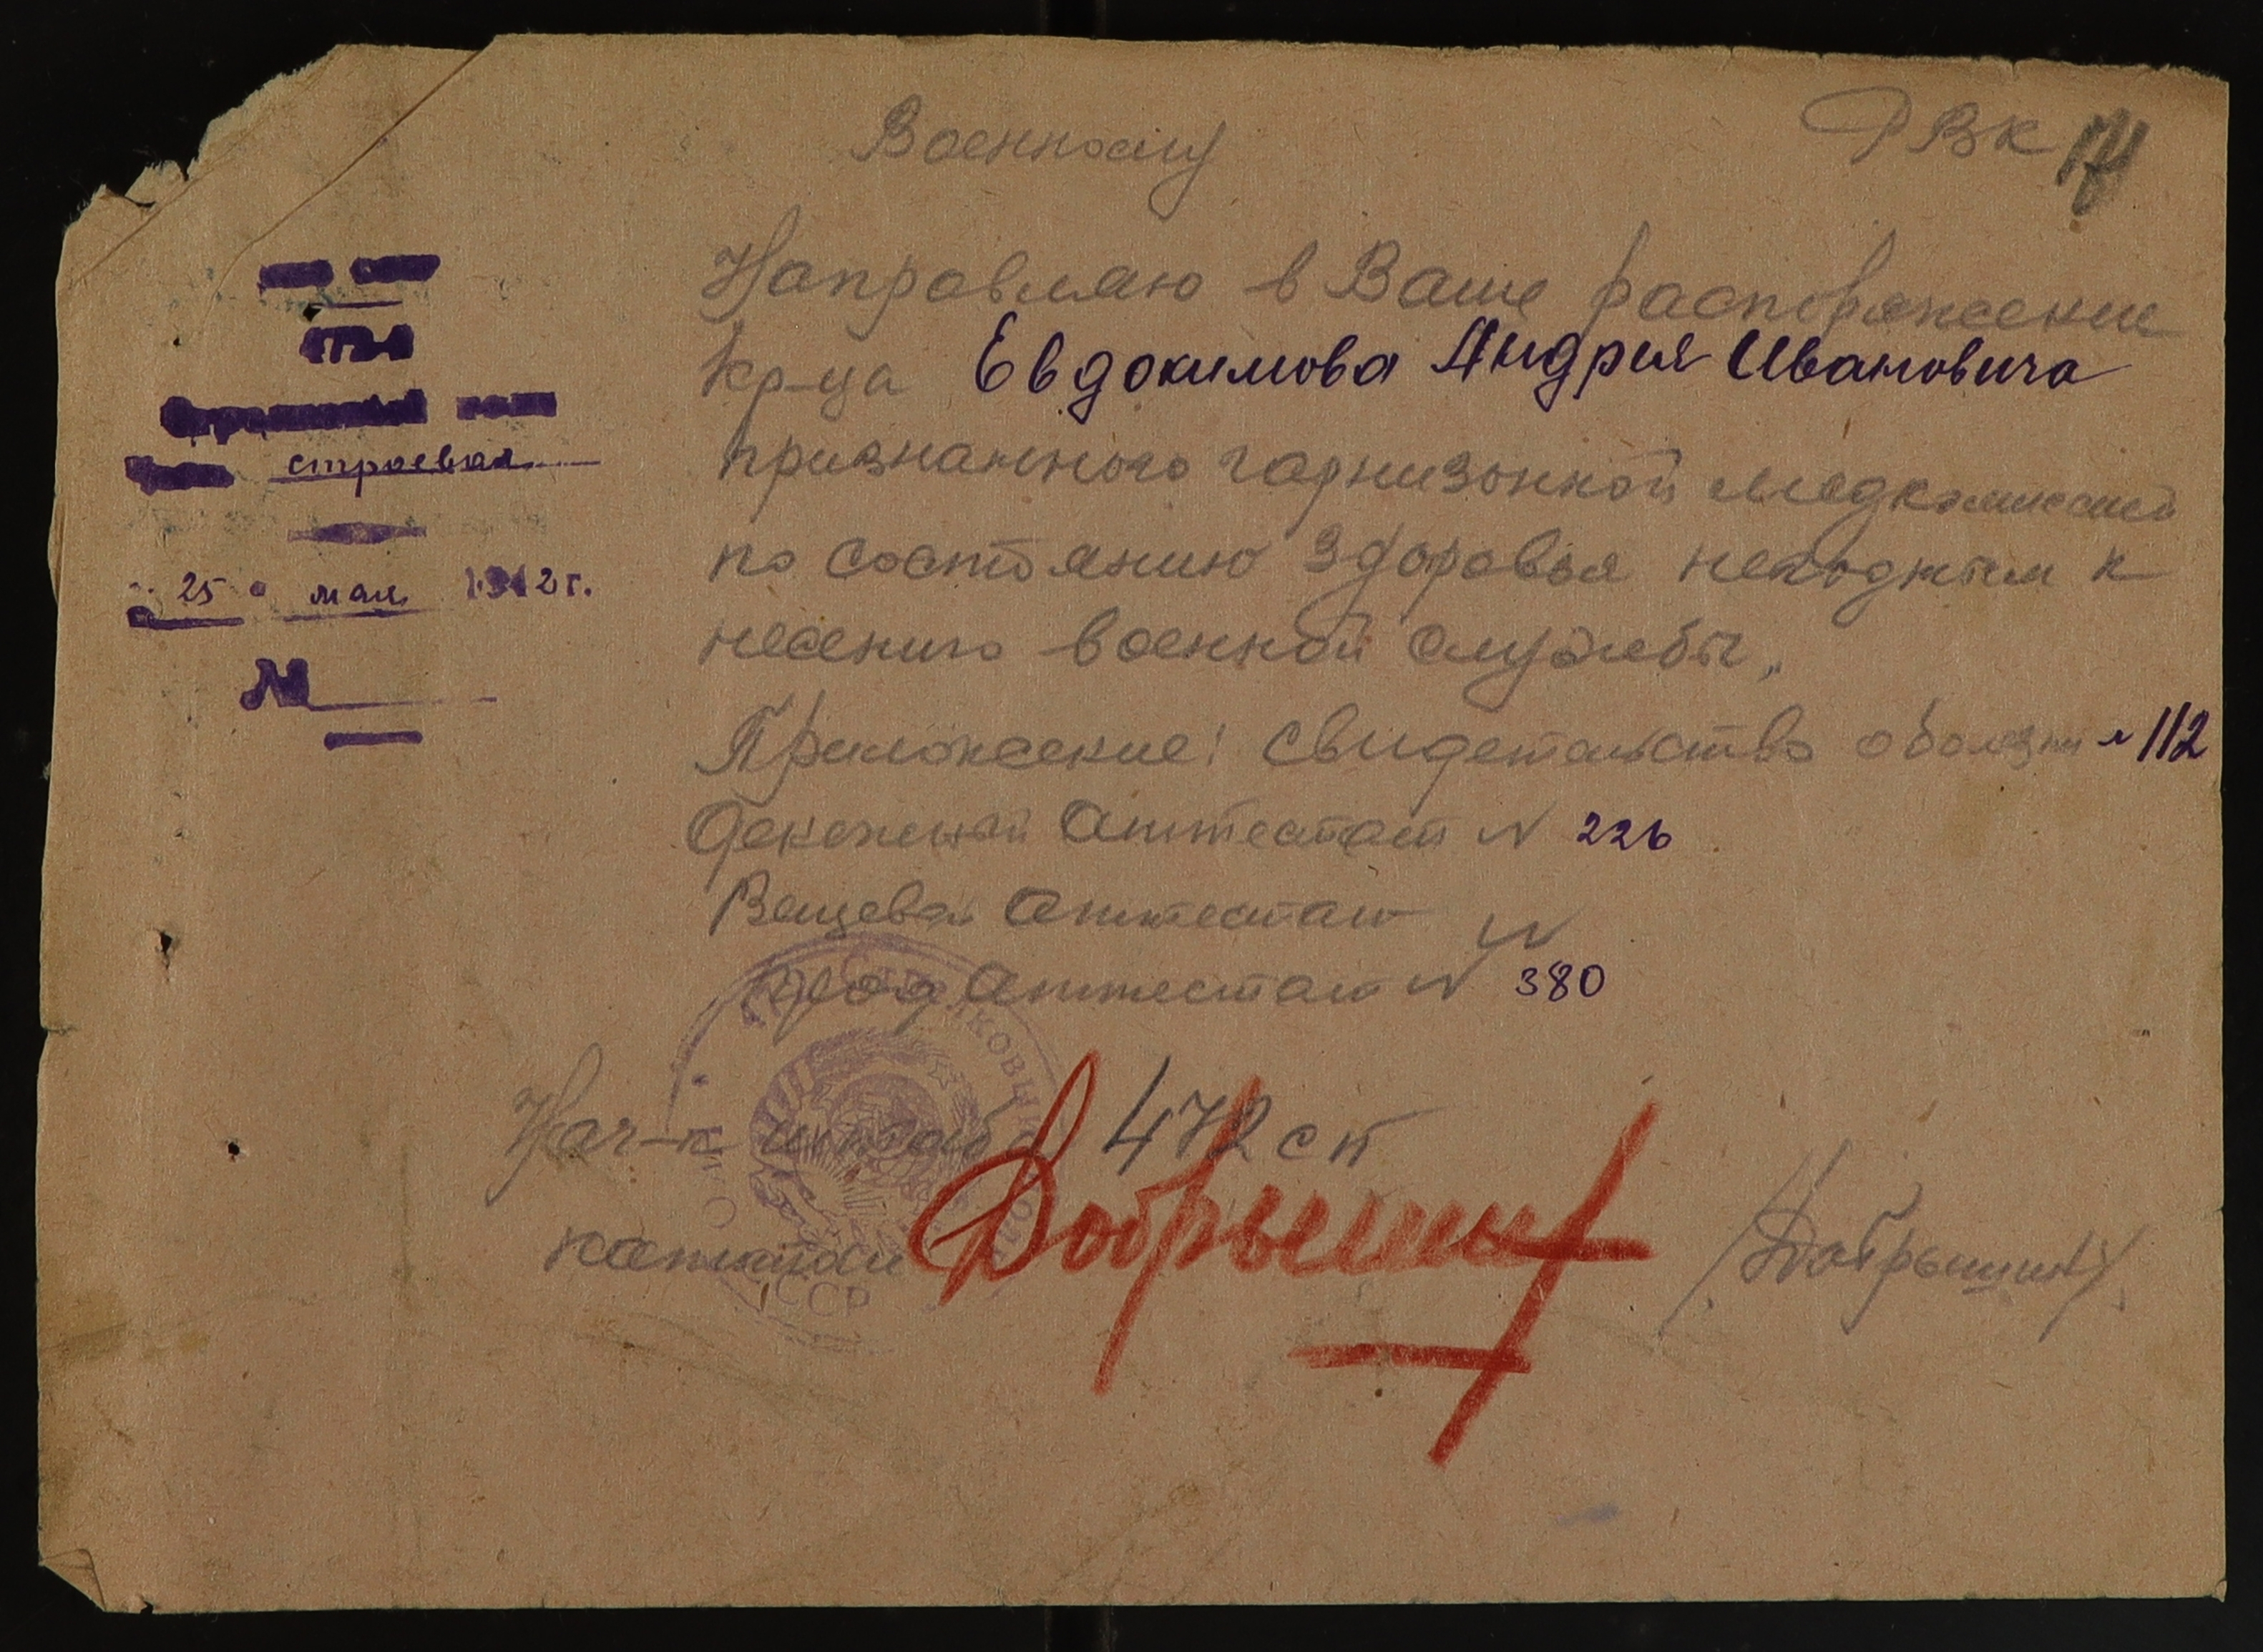 Военкому РВК
Направляю в Ваше распоряжение
кр-ца Евдокимова Андрия Ивановича
признанного гарнизонной медкомиссией
по состоянию здоровья негодным к
несению военной службы.
Приложение: свидетельство о болезни № 112
Денежный аттестат N 226
Вещевой аттестат N
Прод аттестат N 380
Нач-к штаба 472 сп
капитан Добрынин /Добрынин/
строевая
"25" мая 1942 г.
№
СССР